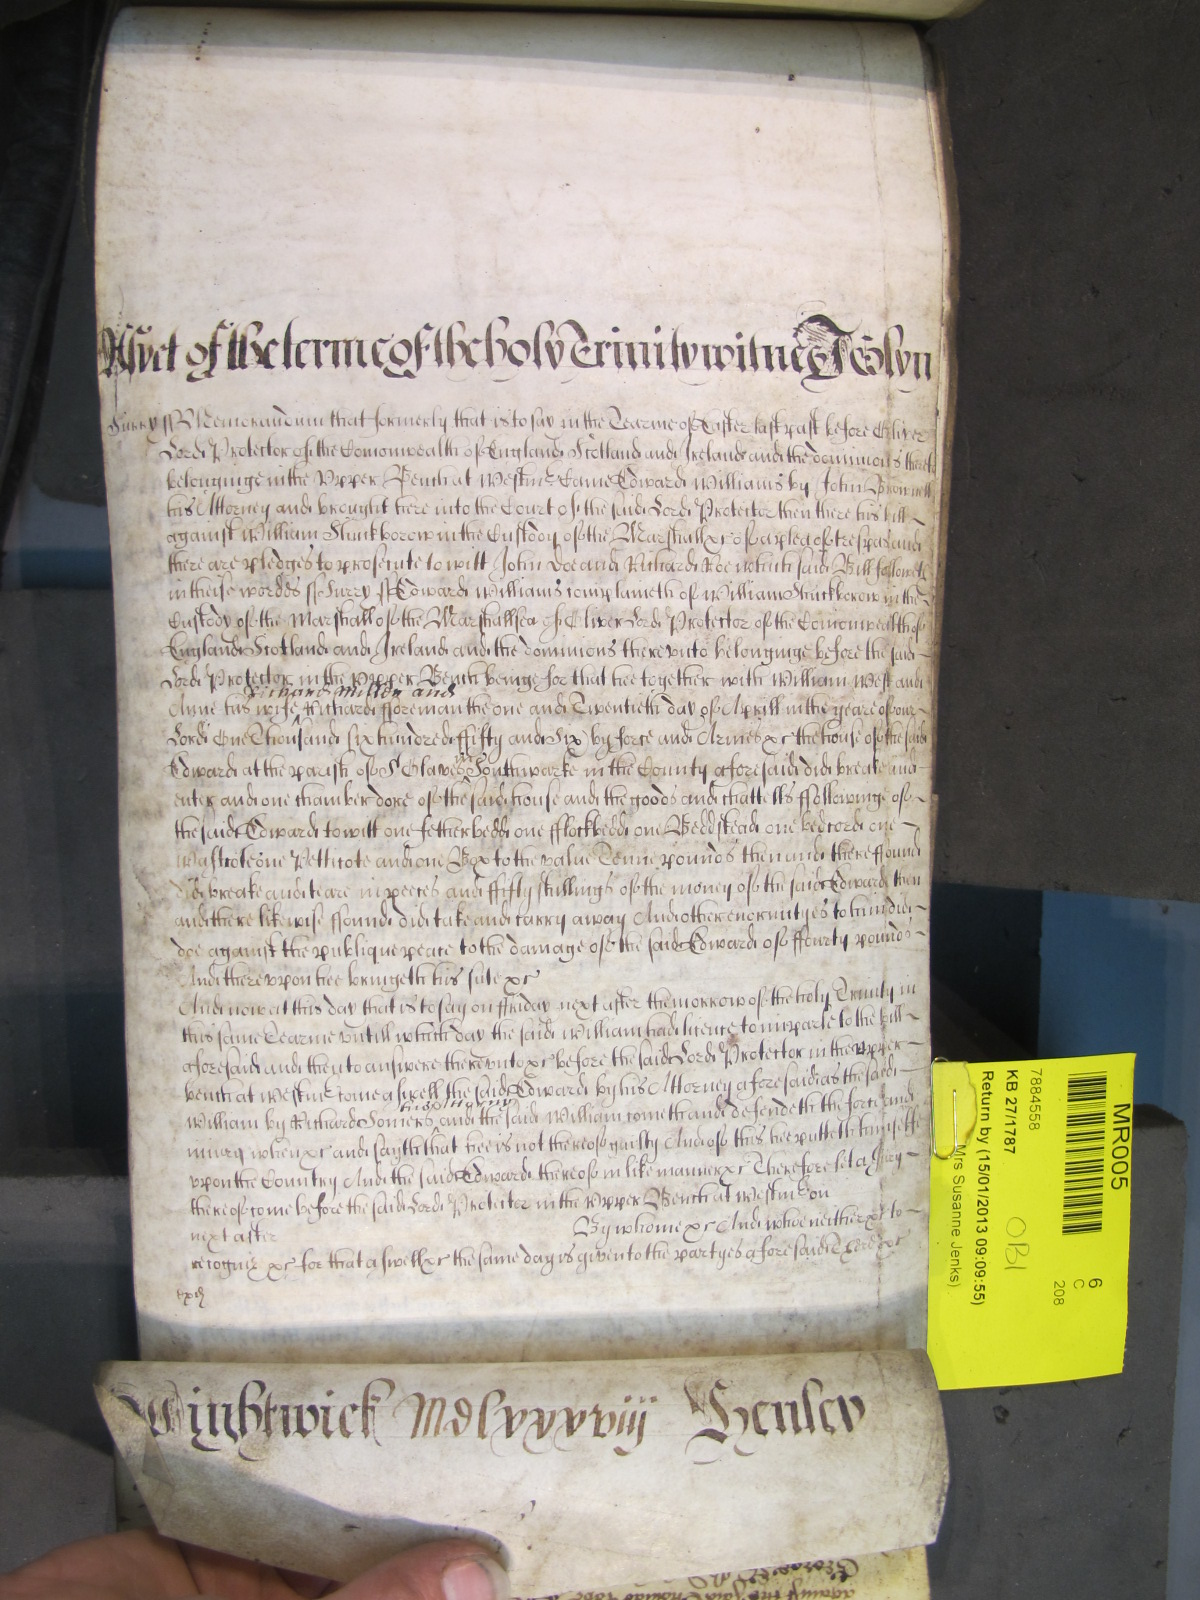 Yet of the terme of the holy Trinity witnes J Glyn
Surry ss Memorandum that formerly that is to say in the Tearme of Easter last past before Oliver
Lord Protector of the Comonwealth of England Scotland and Ireland and the dominions thereto
belonginge in the Upper Bench at Westmr Came Edward Williams by John Brownell
his Attorney and brought here into the Court of the said Lord Protector then there his bill
against William Shuckborow in the Custody of the Marshall &c of a plea of trespas and
there are pledges to prosecute to witt John Doe and Richard Roe which said Bill followeth
in these wordes ss Surry ss Edward Williams complaineth of William Shuckborow in the
Custody of the Marshall of the Marshallsea of Oliver Lord Protector of the Comonwealth of
England Scotland and Ireland and the dominions thereunto belonginge before the said
Lord Protector in the Upper Bench beinge for that hee together with William West and
Richard Miller and
Anne his wife Richard fforeman the one and Twentieth day of Aprill in the yeare of our
Lord One Thousand six hundred ffifty and Six by force and Armes &c the house of the said
Edward at the parish of St Olaves in Southwarke in the County aforesaid did breake and
enter and one chamber dore of the said house and the goods and chattells ffollowinge of
the said Edward to witt one fether bedd one fflockbedd one Beddstead one bedcord one
wastcote one Petticote and one Box to the value Tenne pounds then and there ffound
did breake and teare in peeces and ffifty shillings of the money of the said Edward then
and there likewise ffound did take and carry away And other enormityes to him did
doe against the publique peace to the damage of the said Edward of ffourty pounds
And thereupon hee bringeth his sute &c
And now at this day that is to say on ffriday next after the morrow of the holy Trinity in
this same Tearme untill which day the said William had licence to imparle to the bill
aforesaid and then to answere thereunto &c before the said Lord Protector in the upper
bench at Westmr come aswell the said Edward by his Attorney aforesaid as the said
William by Richard Somers his Attorney and the said William cometh and defendeth the force and
iniury when &c and sayth that hee is not thereof guilty And of this hee putteth himselfe
upon the Country And the said Edward thereof in like manner &c Therefore let a Jury
thereof come before the said Lord Protector in the Upper Bench at Westmr on
next after By whome &c And who neither &c to
recogniz &c for that aswell &c the same day is given to the partyes aforesaid there &c
Wightwick Mdlxxxxviij Henley
MR005
6
C
208
7884558
KB 27/1787
OBI
Return by (15/01/2013 09:09:55)
Mrs Susanne Jenks)